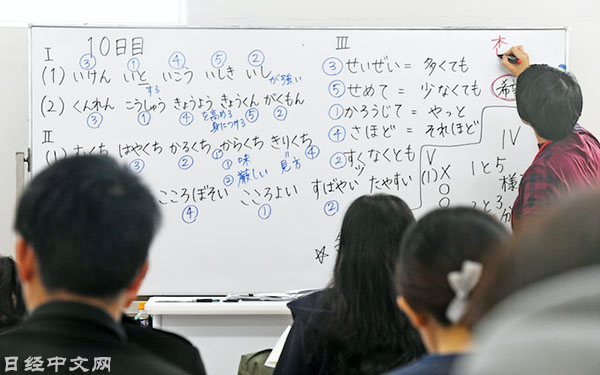 I 10日目
③ ① ④ ⑤ ②
(1) いけん いと いこう いしき いし が強い
する
(2) くんれん こうしゅう きょうよう きょうくん がくもん
③ ① ④ を高める ⑤ ②
身につける
II
はやくち かるくち からくち きりくち
③ ② ① 味 ④
② 厳しい 見方
こころぼそい こころよい すばやい たやすい
④ ① ②
III
③ せいぜい = 多くても
⑤ せめて = 少なくても
① かろうじて = やっと
④ さほど = それほど
② すくなくとも
少
IV
1と5
V
(1) X
O
O
2と3
木
日经中文网